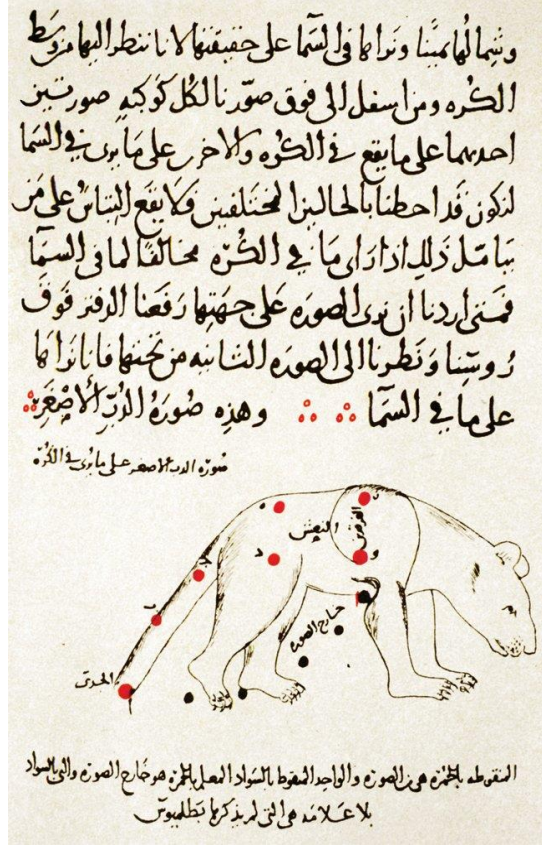 وشمالها يمينا ونراها في السما على حقيقتها لانا ننظر اليها من وسط
الكره ومن اسفل الى فوق صورنا لكل كوكبه صورتين
احديهما على ما يقع في الكره والاخرى على ما يرى في السما
لنكون قد احطنا بالحالين المختلفين فلا يقع التباس على من
يتامل ذلك اذا راى ما في الكره مخالفا لما في السما
فمتى اردنا ان نرى الصوره على جهتها رفعنا الدفتر فوق
روسنا ونظرنا الى الصوره الثانيه من تحتها فانا نراها
على ما في السما وهذه صورة الدب الاصغر
صورة الدب الاصغر على ما يرى في الكره
الفرقدين
النعش
خارج الصوره
الجدى
المنقوطه بالحمره هي من الصوره والواحد المنقوط بالسواد المعلم بالحمره هو خارج الصوره والتي بالسواد
بلا علامه هي التي لم يذكرها بطلميوس